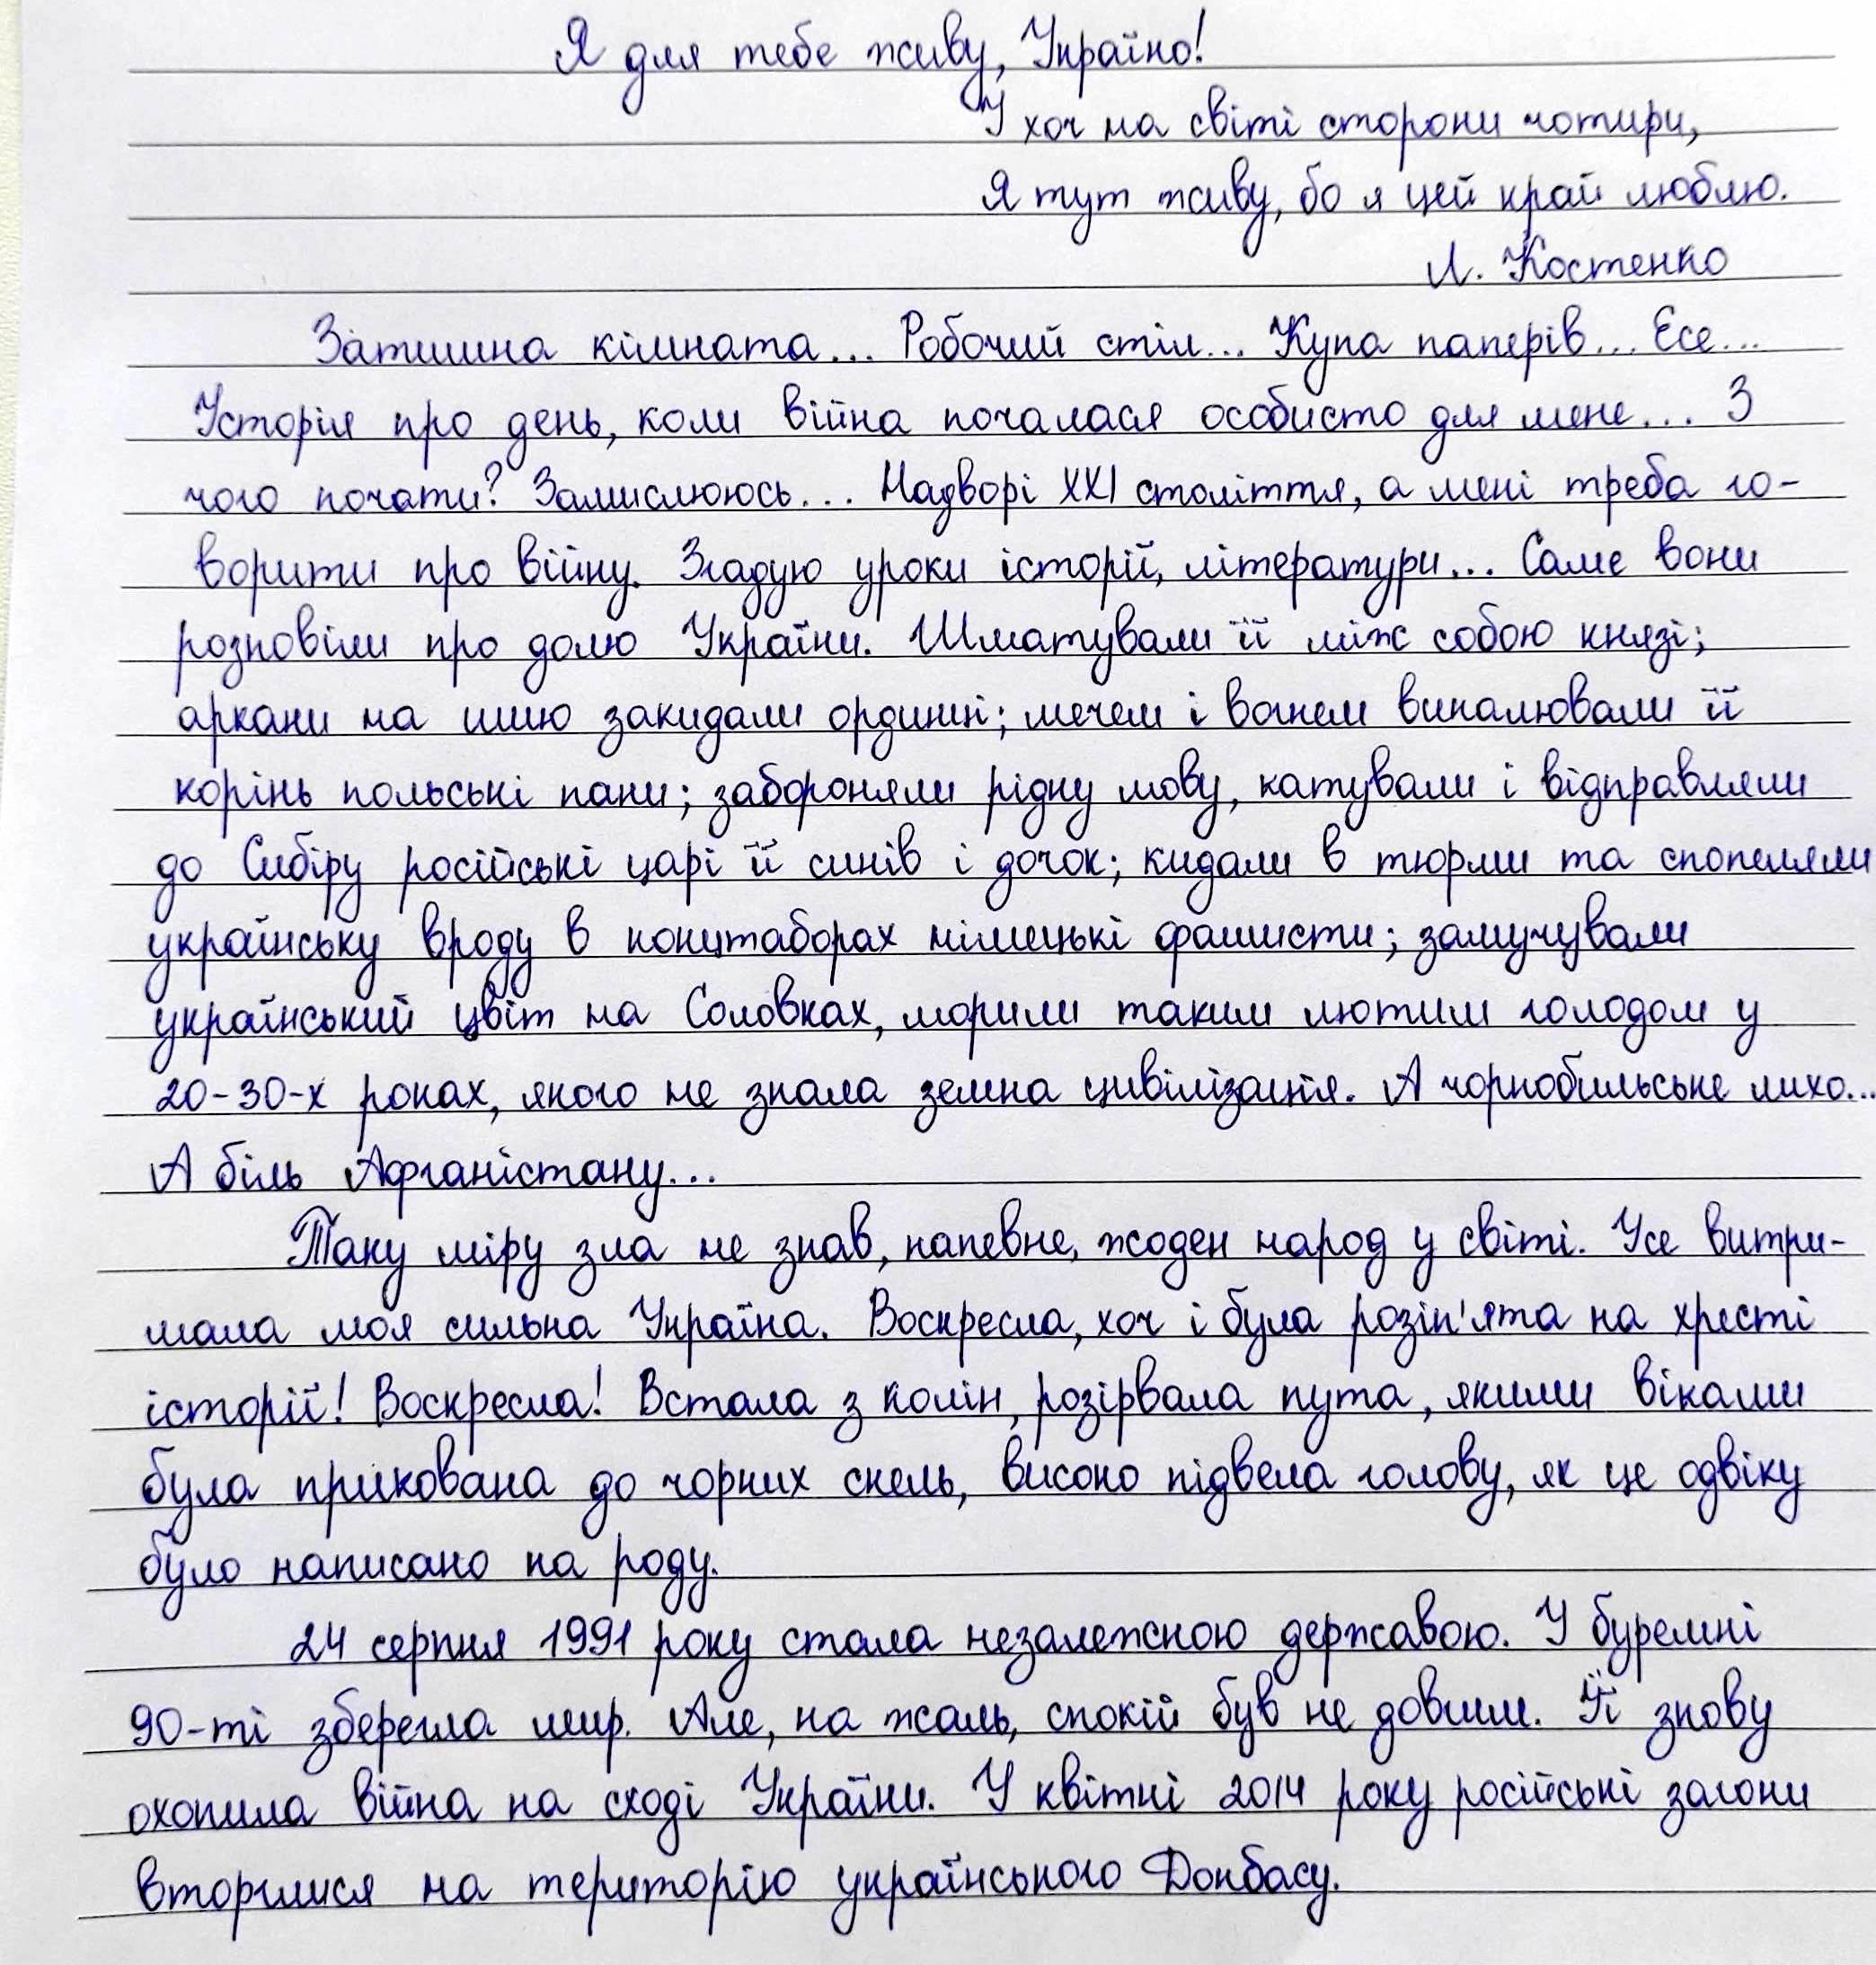 Я для тебе живу, Україно!
І хоч на світі сторони чотири,
Я тут живу, бо я цей край люблю.
Л. Костенко
Затишна кімната... Робочий стіл... Купа паперів... Есе...
Історія про день, коли війна почалася особисто для мене... З
чого почати? Замислююсь... Надворі ХХІ століття, а мені треба го-
ворити про війну. Згадую уроки історії, літератури... Саме вони
розповіли про долю України. Шматували її між собою князі;
аркани на шию закидали ординці; мечем і вогнем випалювали її
корінь польські пани; забороняли рідну мову, катували і відправляли
до Сибіру російські царі її синів і дочок; кидали в тюрми та спопеляли
українську вроду в концтаборах німецькі фашисти; замучували
український цвіт на Соловках, морили таким лютим голодом у
20-30-х роках, якого не знала земна цивілізація. А чорнобильське лихо...
А біль Афганістану...
Таку міру зла не знав, напевне, жоден народ у світі. Усе витри-
мала моя сильна Україна. Воскресла, хоч і була розіп'ята на хресті
історії! Воскресла! Встала з колін, розірвала пута, якими віками
була прикована до чорних скель, високо підвела голову, як це одвіку
було написано на роду.
24 серпня 1991 року стала незалежною державою. У буремні
90-ті зберегла мир. Але, на жаль, спокій був не довгим. Її знову
охопила війна на сході України. У квітні 2014 року російські загони
вторглися на територію українського Донбасу.